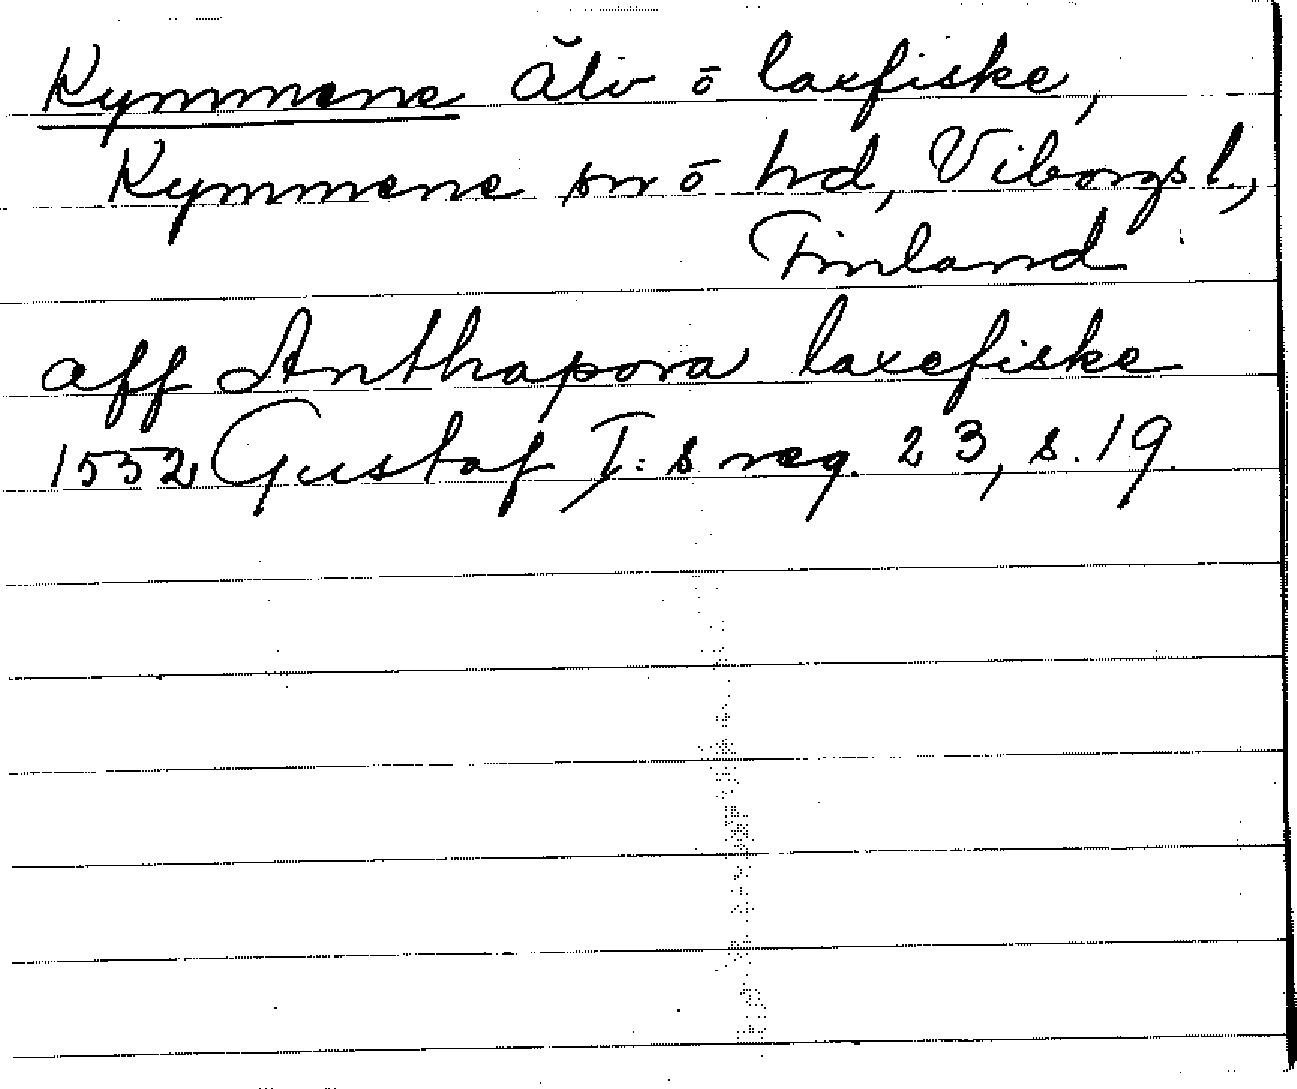 Kymmene älv o laxfiske,
Kymmene sn o hd, Viborgs l.,
Finland
aff Anthapora laxefiske
1552 Gustaf I:s reg. 23, s. 19